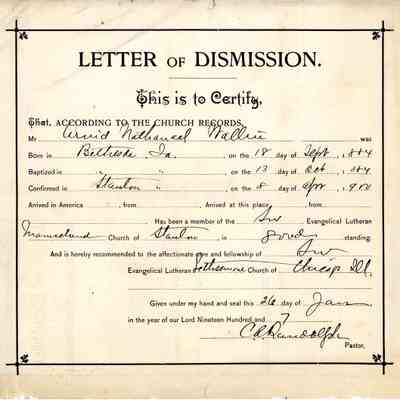 LETTER OF DISMISSION.
This is to Certify,
That, ACCORDING TO THE CHURCH RECORDS,
Mr Arvid Nathanael Wallin was
Born in Bethesda Ia. , on the 18 day of Sept , 1884
Baptized in " " , on the 13 day of Oct , 1884
Confirmed in Stanton " , on the 8 day of Apr , 1900
Arrived in America , from , Arrived at this place , from
Has been a member of the Sw Evangelical Lutheran
Mamrelund Church of Stanton , is good standing.
And is hereby recommended to the affectionate care and fellowship of Sw
Evangelical Lutheran Bethlehem Church of Chicago Ill.
Given under my hand and seal this 26 day of Jan
in the year of our Lord Nineteen Hundred and 7
C A Randolph
Pastor.